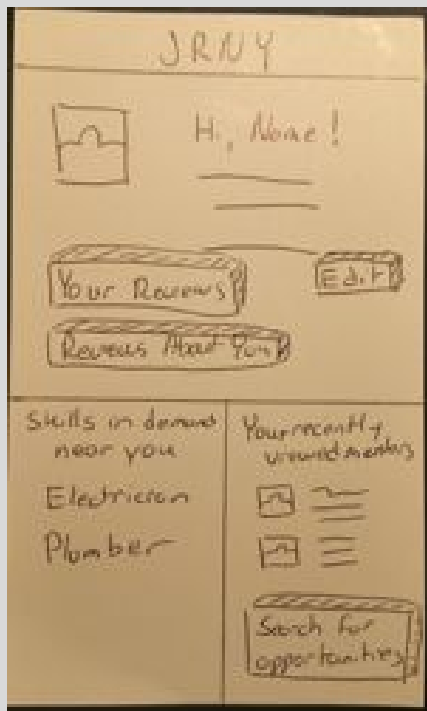 JRNY
Hi, Name!
Your Reviews
Edit
Reviews About You
Skills in demand
near you
Electrician
Plumber
Your recently
viewed mentors
Search for
opportunities